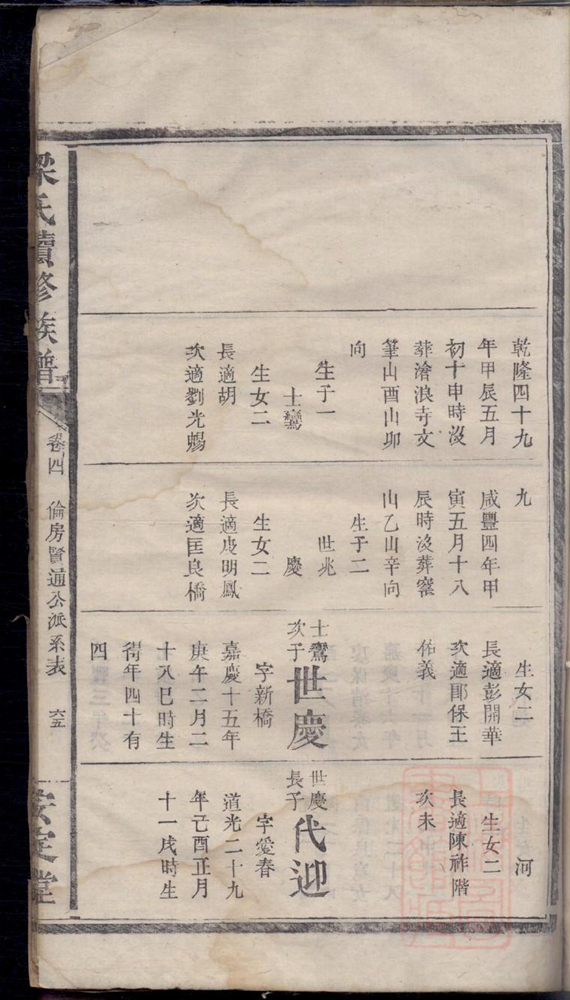 乾隆四十九
年甲辰五月
初十申時沒
葬滄浪寺文
筆山酉山卯
向
生子一
士鸞
生女二
長適胡
次適劉光賜
九
咸豐四年甲
寅五月十八
辰時沒葬窰
山乙山辛向
生子二
世兆
慶
生女二
長適皮明鳳
次適匡良橋
生女二
長適彭開華
次適鄖保王
佑義
士鸞
次子
世慶
字新橋
嘉慶十五年
庚午二月二
十八巳時生
得年四十有
四
河
生女二
長適陳祚階
次未
世慶
長子
代迎
字愛春
道光二十九
年己酉正月
十一戌時生
梁氏續修族譜
卷四
倫房賢通公派系表
六五
安定堂